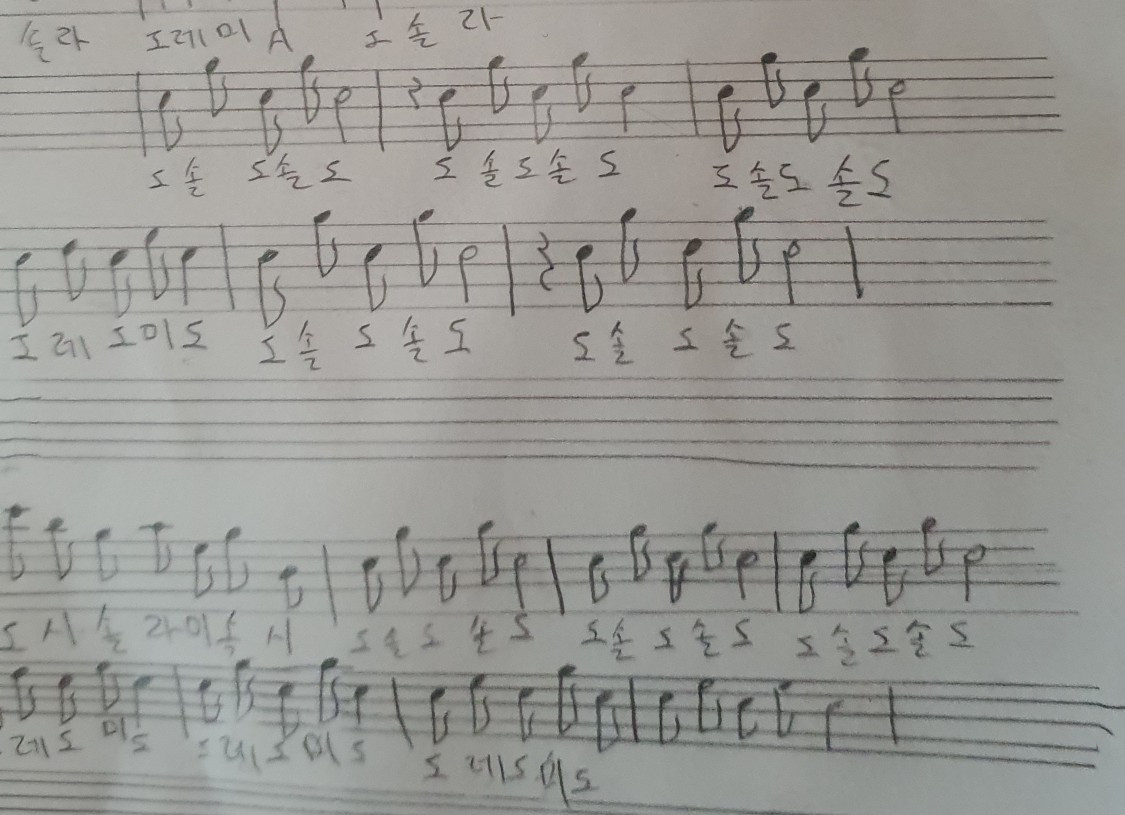 솔라 도레미 A 도 솔 라
도 솔 도솔 도 도 솔도솔 도 도 솔도 솔도
도 레 도미도 도 솔 도 솔 도 도 솔 도 솔 도
도 시 솔 라미솔 시 도솔도 솔 도 도솔 도 솔 도 도 솔 도 솔 도
레도 미도 도레도미도 도 레도미도